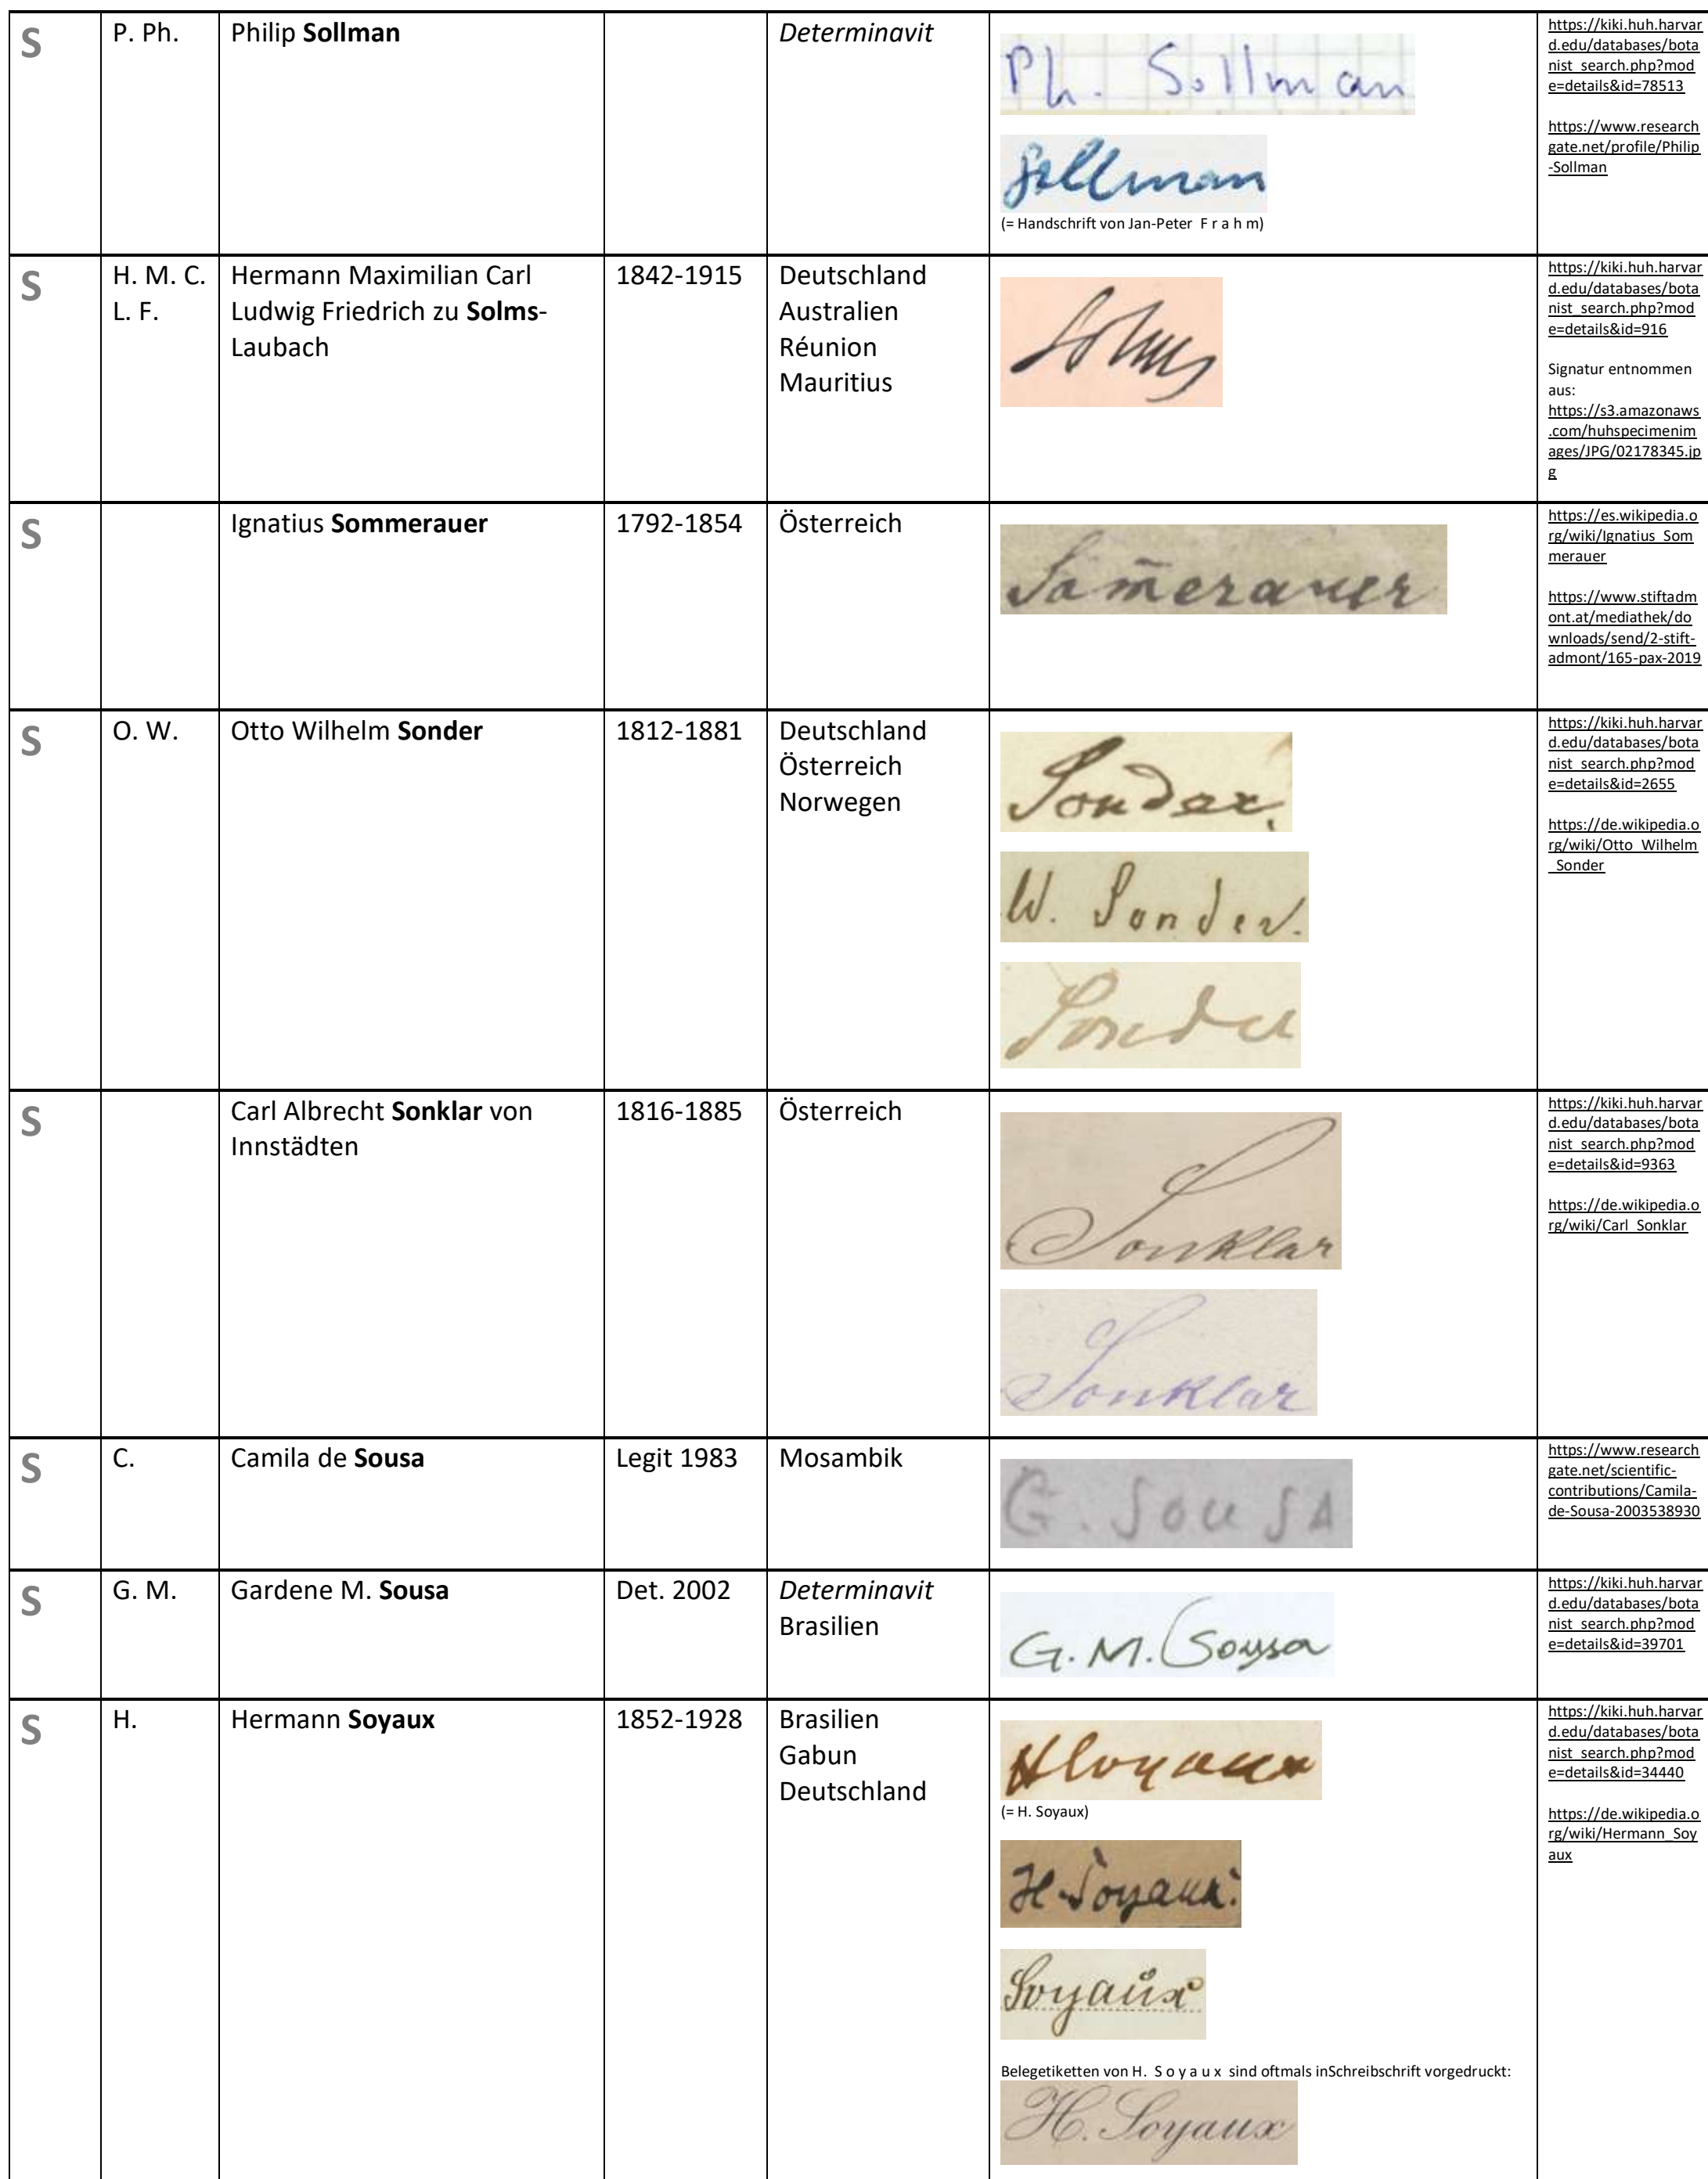 S P. Ph. Philip Sollman Determinavit
Ph. Sollman
Sollman
(= Handschrift von Jan-Peter F r a h m)
https://kiki.huh.harvar
d.edu/databases/bota
nist_search.php?mod
e=details&id=78513
https://www.research
gate.net/profile/Philip
-Sollman
S H. M. C. Hermann Maximilian Carl 1842-1915 Deutschland
L. F. Ludwig Friedrich zu Solms- Australien
Laubach Réunion
Mauritius
Solms
https://kiki.huh.harvar
d.edu/databases/bota
nist_search.php?mod
e=details&id=916
Signatur entnommen
aus:
https://s3.amazonaws
.com/huhspecimenim
ages/JPG/02178345.jp
g
S Ignatius Sommerauer 1792-1854 Österreich
Som̄erauer
https://es.wikipedia.o
rg/wiki/Ignatius_Som
merauer
https://www.stiftadm
ont.at/mediathek/do
wnloads/send/2-stift-
admont/165-pax-2019
S O. W. Otto Wilhelm Sonder 1812-1881 Deutschland
Österreich
Norwegen
Sonder.
W. Sonder.
Sonder
https://kiki.huh.harvar
d.edu/databases/bota
nist_search.php?mod
e=details&id=2655
https://de.wikipedia.o
rg/wiki/Otto_Wilhelm
_Sonder
S Carl Albrecht Sonklar von 1816-1885 Österreich
Innstädten
Sonklar
Sonklar
https://kiki.huh.harvar
d.edu/databases/bota
nist_search.php?mod
e=details&id=9363
https://de.wikipedia.o
rg/wiki/Carl_Sonklar
S C. Camila de Sousa Legit 1983 Mosambik
C. Sousa
https://www.research
gate.net/scientific-
contributions/Camila-
de-Sousa-2003538930
S G. M. Gardene M. Sousa Det. 2002 Determinavit
Brasilien
G. M. Sousa
https://kiki.huh.harvar
d.edu/databases/bota
nist_search.php?mod
e=details&id=39701
S H. Hermann Soyaux 1852-1928 Brasilien
Gabun
Deutschland
HSoyaux
(= H. Soyaux)
H. Soyaux.
Soyaux
Belegetiketten von H. S o y a u x sind oftmals inSchreibschrift vorgedruckt:
H. Soyaux
https://kiki.huh.harvar
d.edu/databases/bota
nist_search.php?mod
e=details&id=34440
https://de.wikipedia.o
rg/wiki/Hermann_Soy
aux